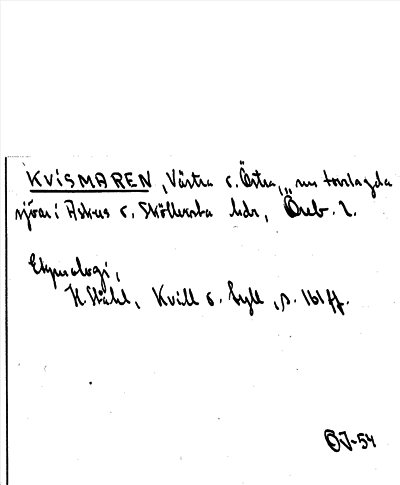 KVISMAREN, Västra o. Östra, nu torrlagda
sjöar i Askers o. Sköllersta hdr, Öreb. l.
Etymologi,
H. Ståhl, Kvill o. tyll, s. 161 ff.
ÖJ-54